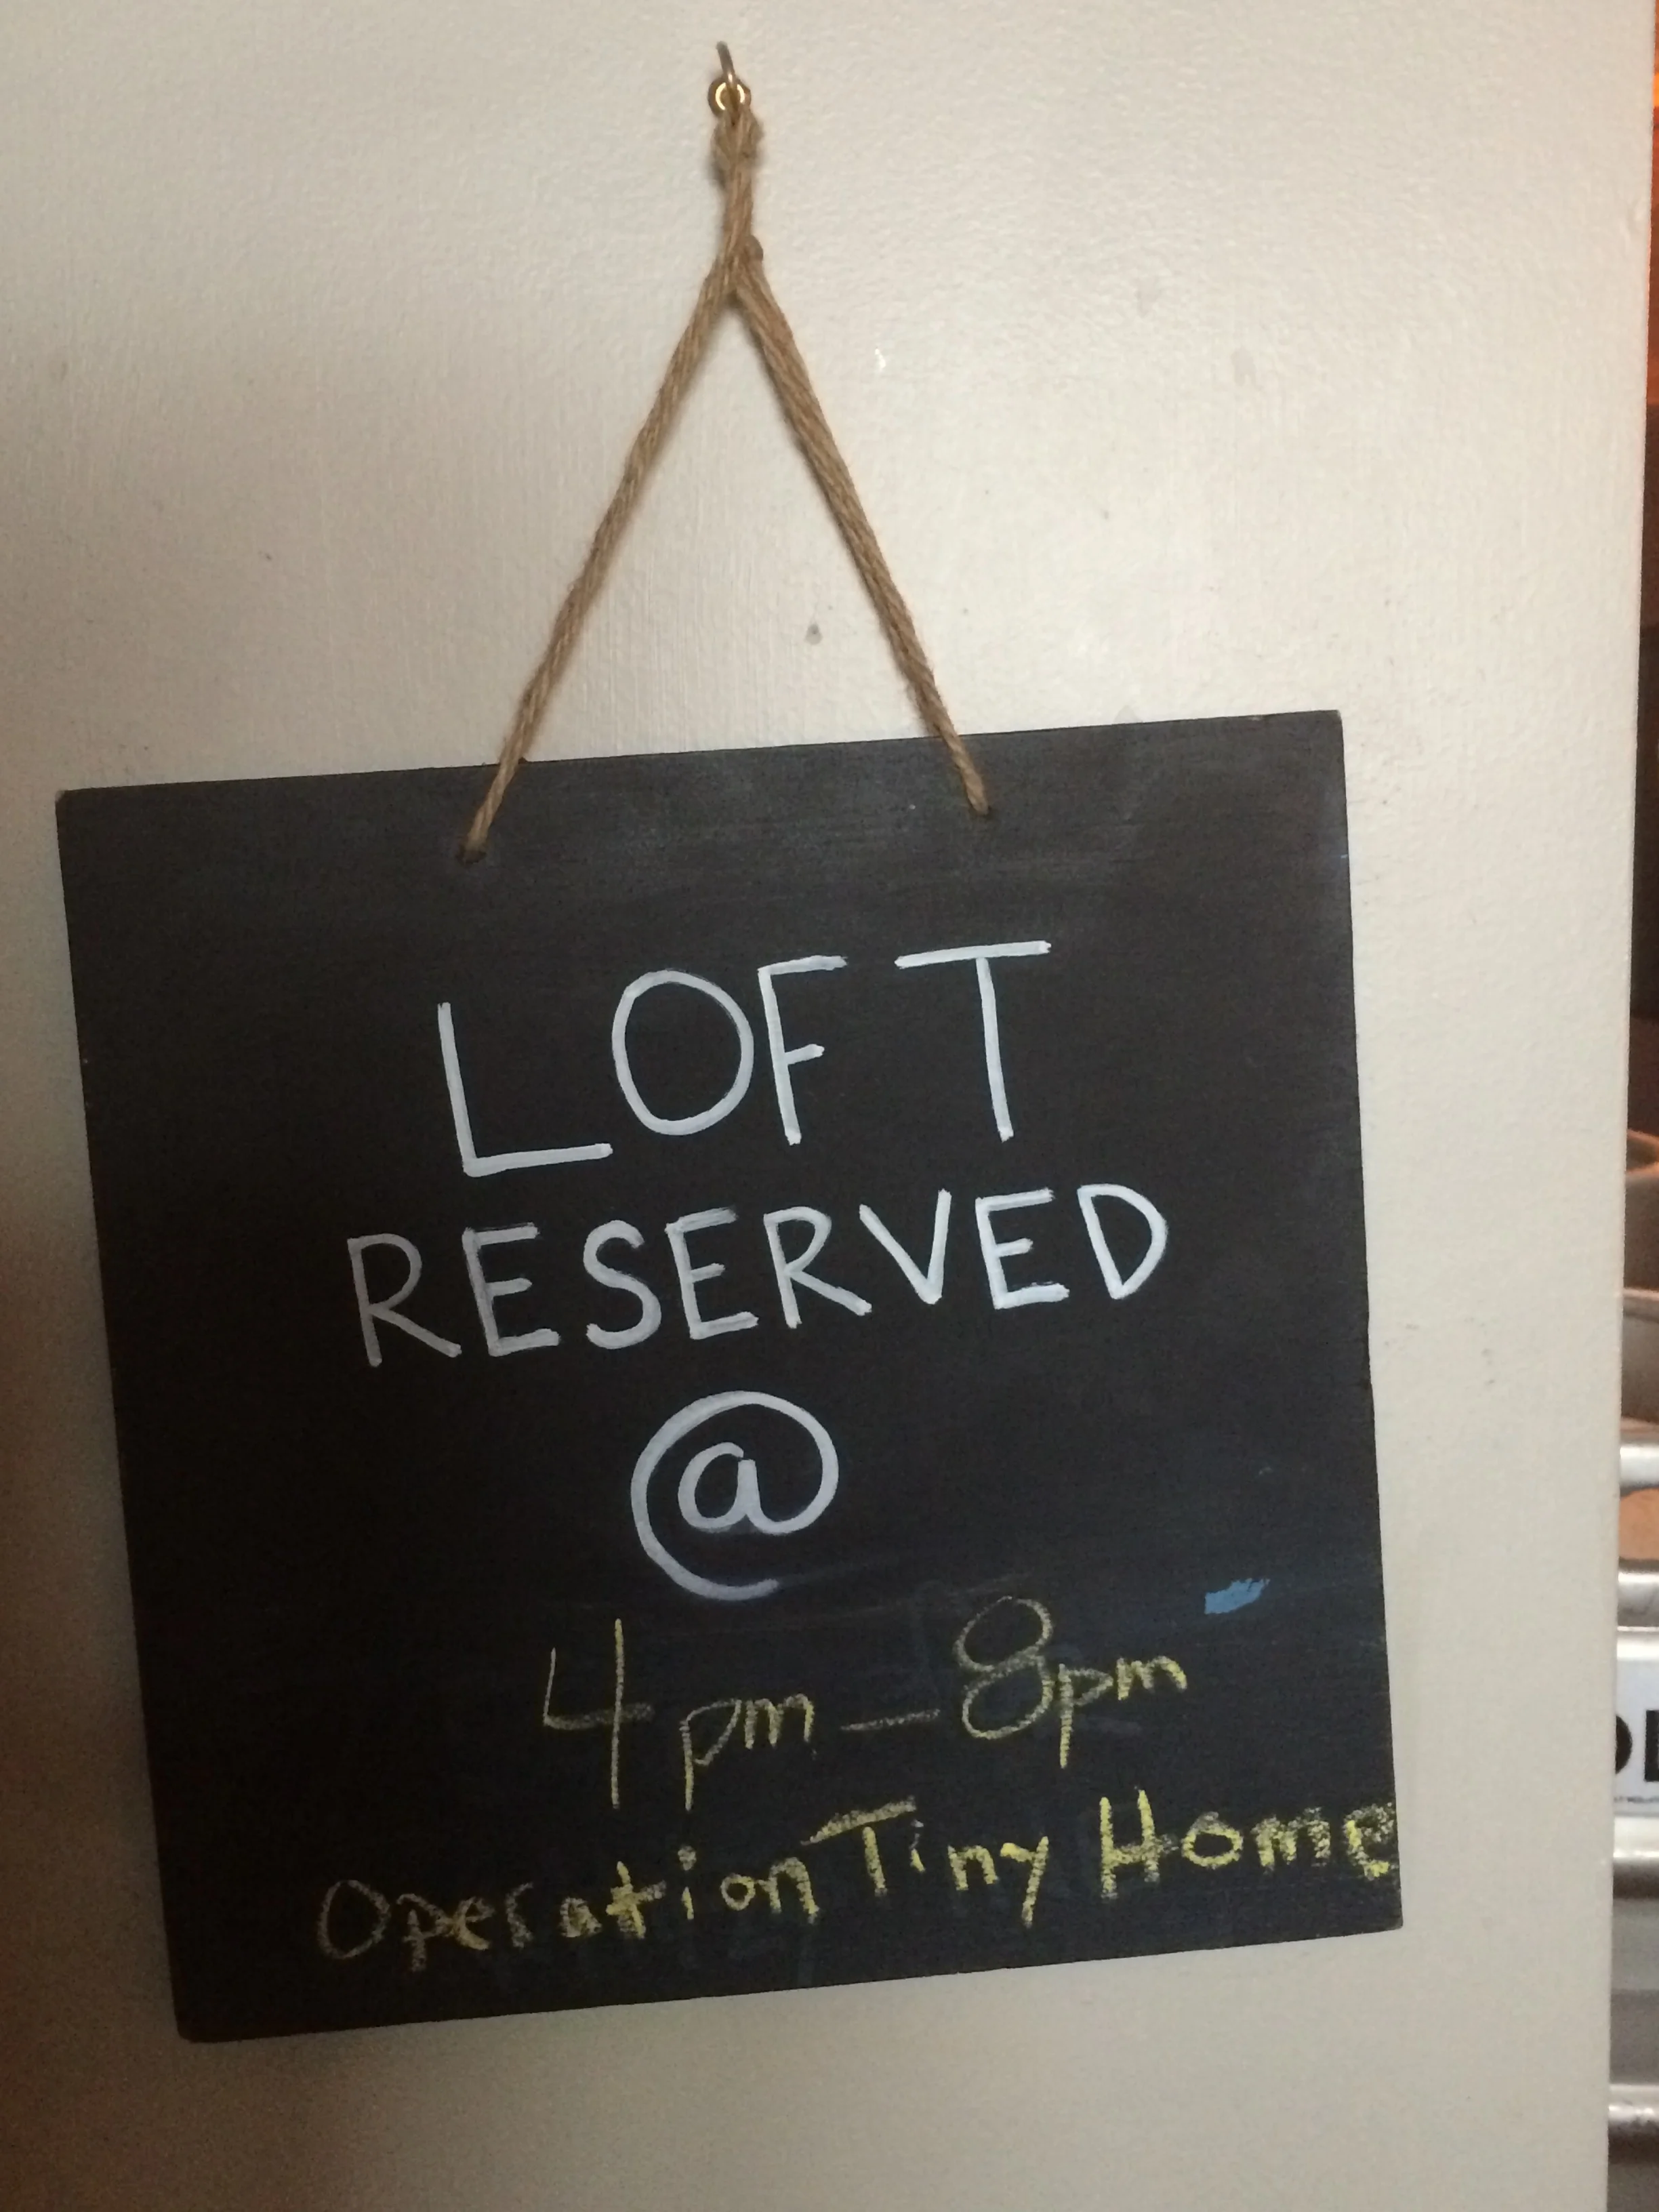 LOFT
RESERVED
@
4pm-8pm
Operation Tiny Home